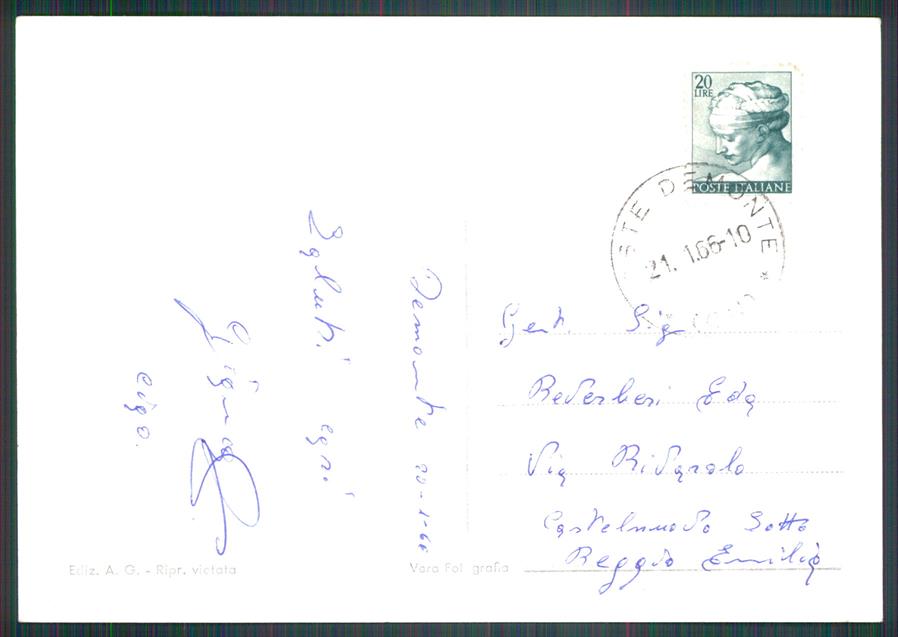 20
LIRE
POSTE ITALIANE
STE DEMONTE *
21.1.66-10
Demonte 20-1-66
Saluti cari
ciao.
Gent. Sig
Reverberi Eda
Via Rivarolo
Castelnuovo Sotto
Reggio Emilia
Ediz. A. G. - Ripr. vietata
Vera Fotografia